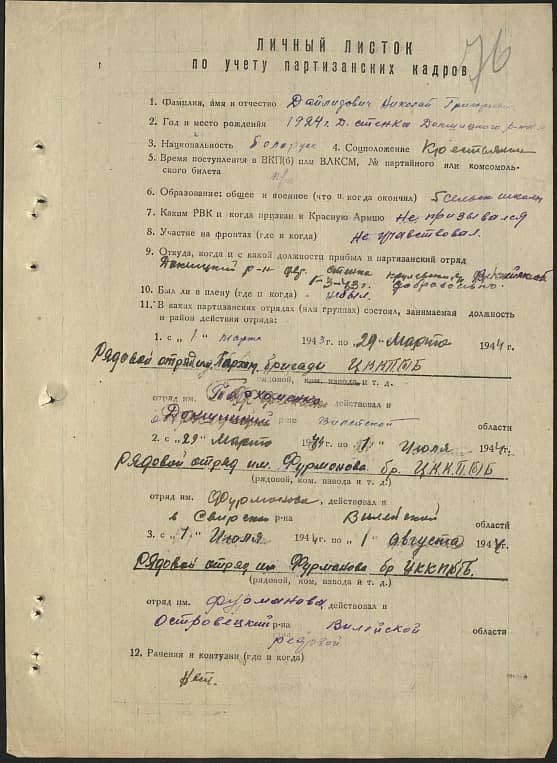 76
ЛИЧНЫЙ ЛИСТОК
по учету партизанских кадров
1. Фамилия, имя и отчество Дайлидович Николай
2. Год и место рождения 1924 г. Д. стенка Докшицкого р-на
3. Национальность Белорус 4. Соцположение Крестьянин
5. Время поступления в ВКП(б) или ВЛКСМ, № партийного или комсомоль-
ского билета
6. Образование: общее и военное (что и когда окончил) 5 школы
7. Каким РВК и когда призван в Красную Армию Не призывался
8. Участие на фронтах (где и когда) Не учавствовал.
9. Откуда, когда и с какой должности прибыл в партизанский отряд
р-н дер. стенка
1-3-43г. добровольно.
10. Был ли в плену (где и когда) не был.
11. В каких партизанских отрядах (или группах) состоял, занимаемая должность
и район действия отряда:
1. с „ 1 " марта 1943 г. по „ 29 " Марта 1944 г.
Рядовой Пархом. бригади ЦККПБ
рядовой, ком. взвода и т. д.
отряд им. Пархоменко действовал в
р-на Вилейской области
2. с „ 29 " Марта 44 г. по „ 1 " Июля 1944 г.
Рядовой отряд им. Фурманова бр. ЦККПБ
(рядовой, ком. взвода и т. д.)
отряд им. Фурманова, действовал
в р-на Вилейской области
3. с „ 1 " Июля 1944 г. по „ 1 " августа 1944 г.
Рядовой отряд им Фурманова бр ЦККПБ.
(рядовой, ком. взвода и т. д.)
отряд им. Фурманова действовал в
Островецкий р-на Вилейской области
рядовой
12. Ранения и контузии (где и когда)
Нет.